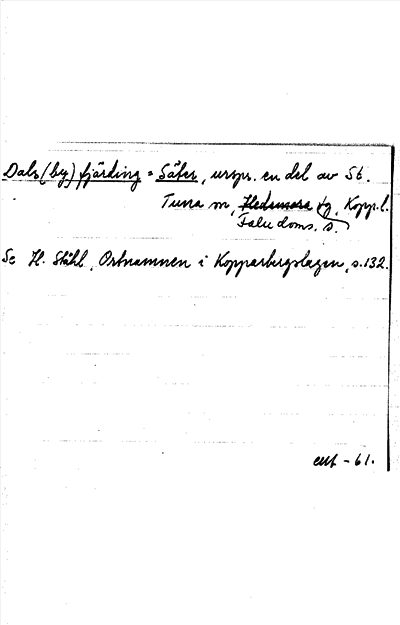 Dals(by)fjärding = Säter, urspr. en del av St.
Tuna sn, Hedemora fg, Kopp.l.
Falu doms. s.
Se H. Ståhl, Ortnamnen i Kopparbergslagen, s.132.
-61.